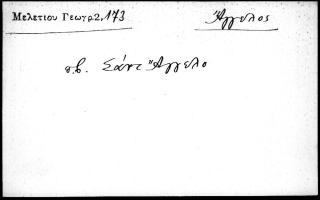 Μελετίου Γεωγρ 2, 173
Ἄγγελος
σ.β. Σάντ Ἄγγελο